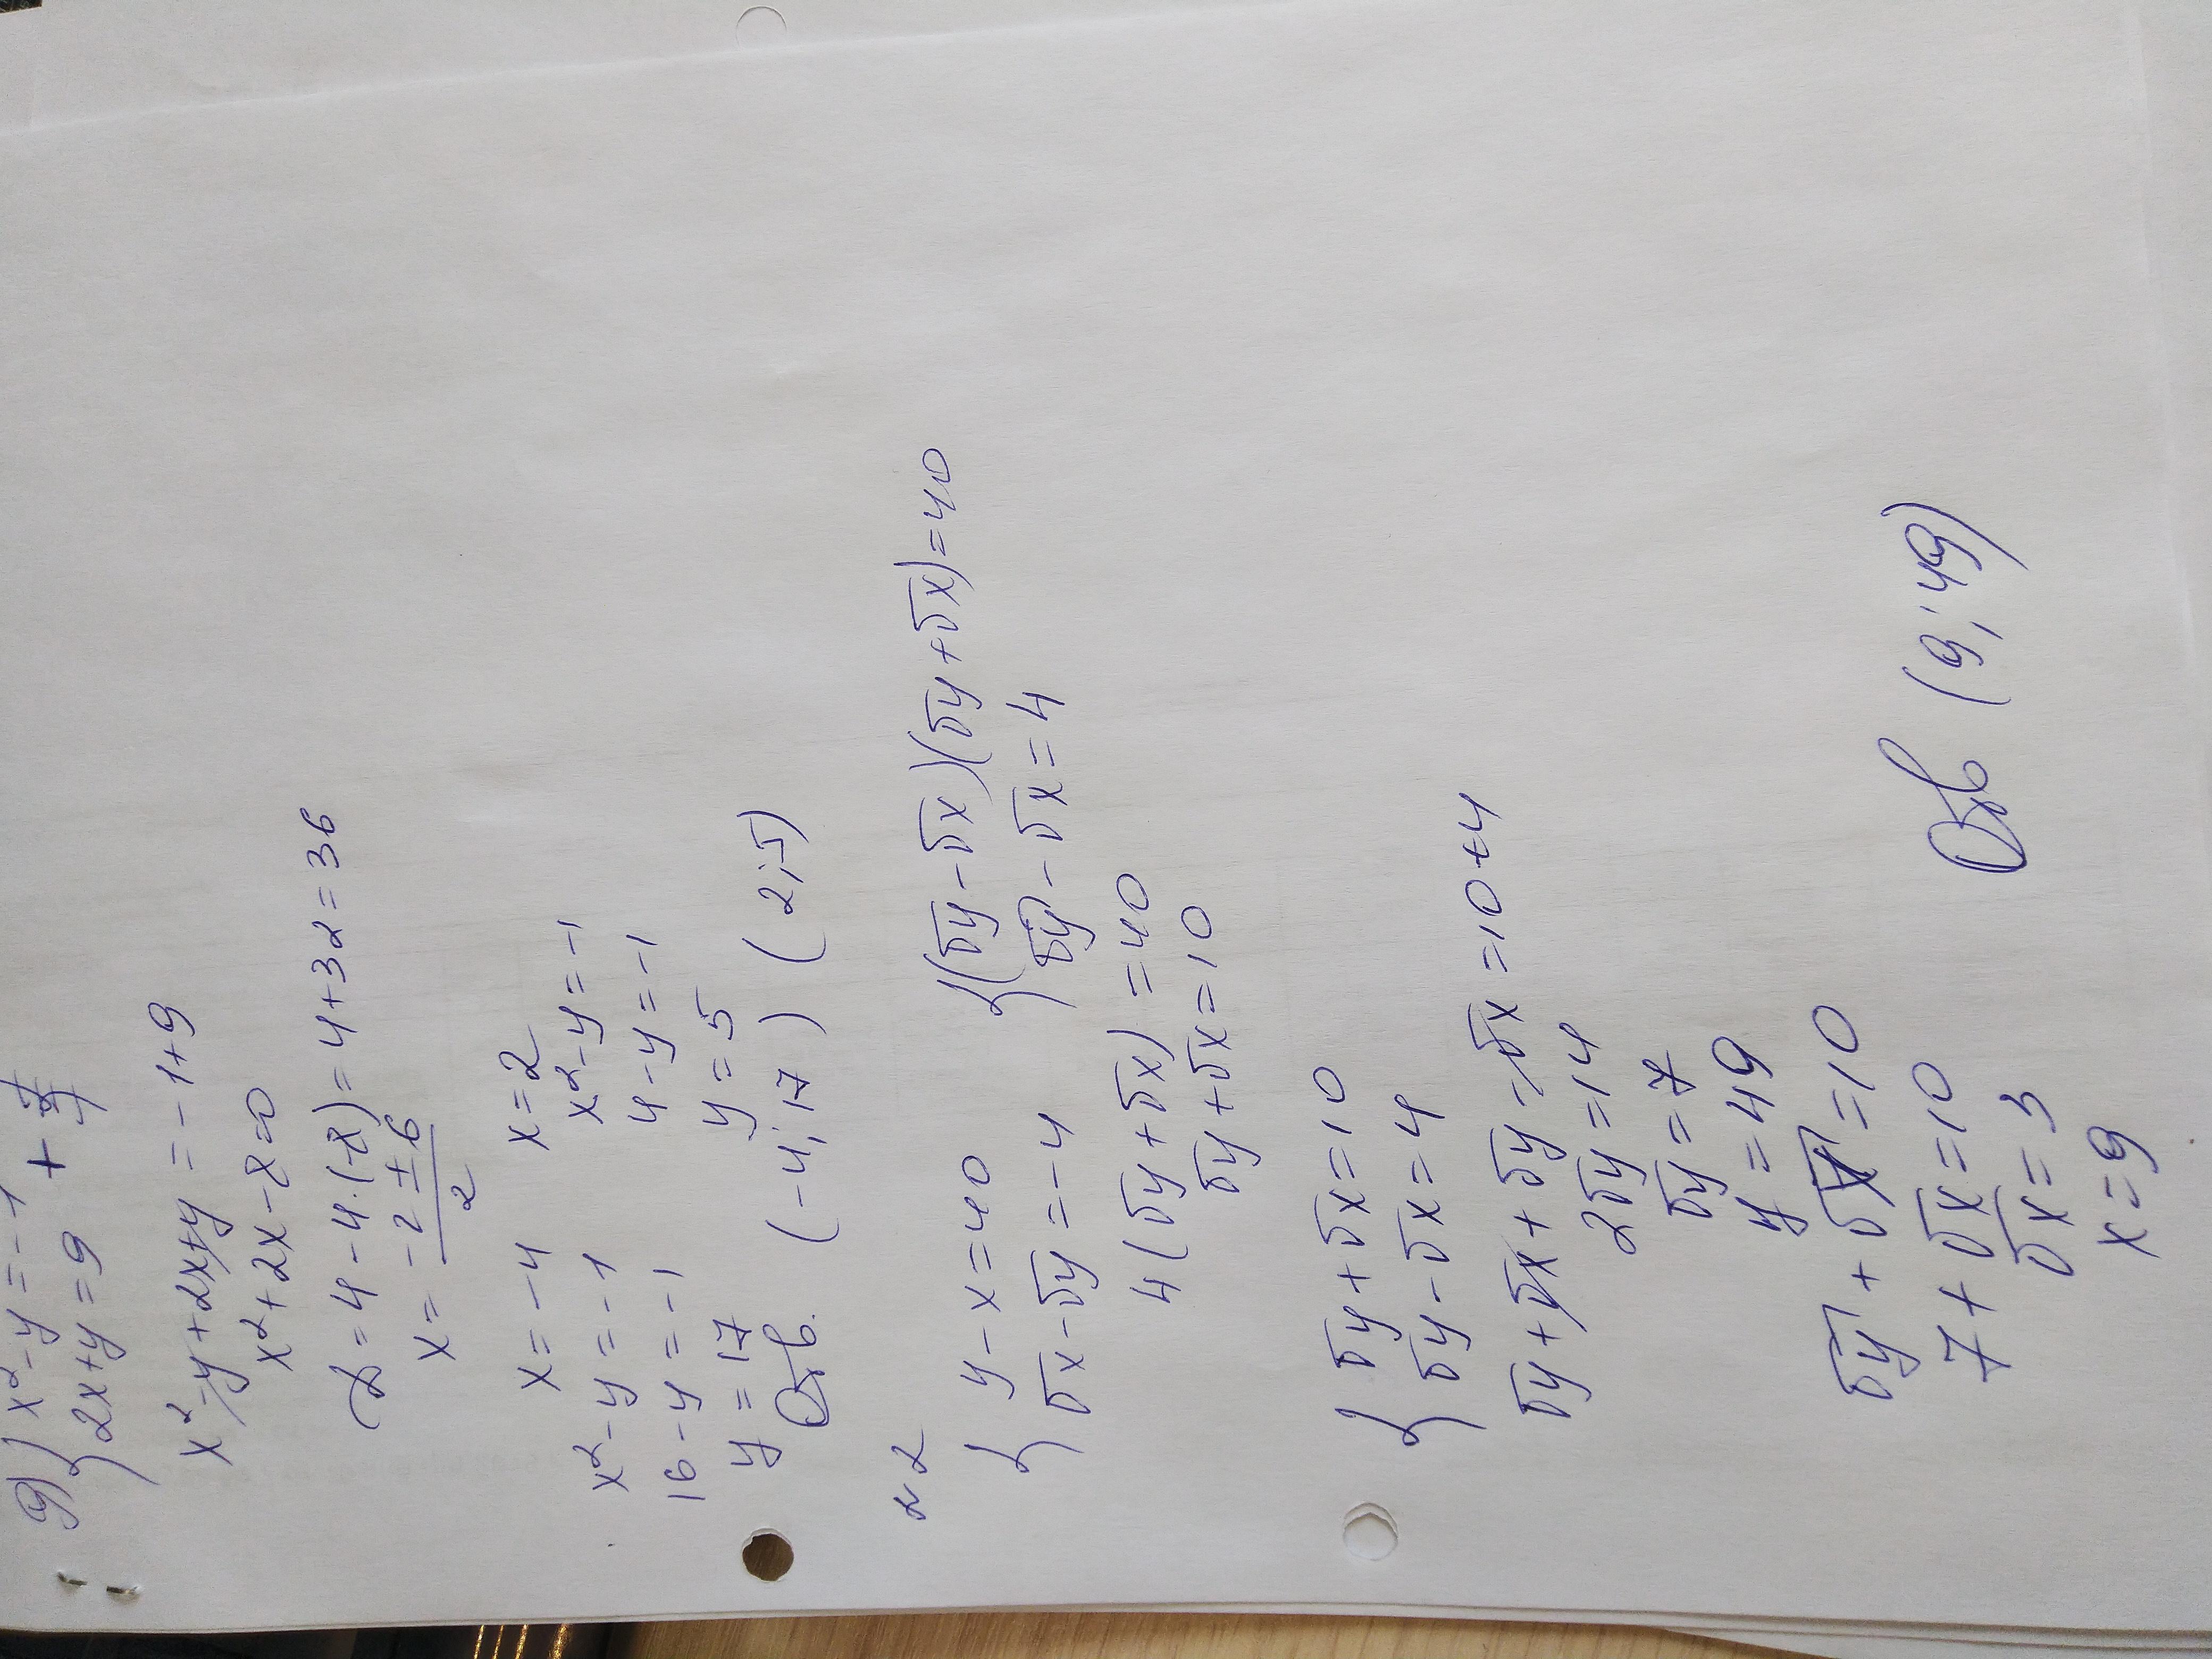 9) { x² - y = -1
2x + y = 9 +
x² - y + 2x + y = -1+9
x² + 2x - 8 = 0
D = 4 - 4·(-8) = 4+32 = 36
x = (-2 ± 6)/2
x = -4 x = 2
x² - y = -1 x² - y = -1
16 - y = -1 4 - y = -1
y = 17 y = 5
Отв. (-4; 17) (2; 5)
№2
{ y - x = 40 { (√y - √x)(√y + √x) = 40
√x - √y = -4 √y - √x = 4
4(√y + √x) = 40
√y + √x = 10
{ √y + √x = 10
√y - √x = 4
√y + √x + √y - √x = 10+4
2√y = 14
√y = 7
y = 49
√y + √x = 10
7 + √x = 10
√x = 3
x = 9
Отв (9; 49)